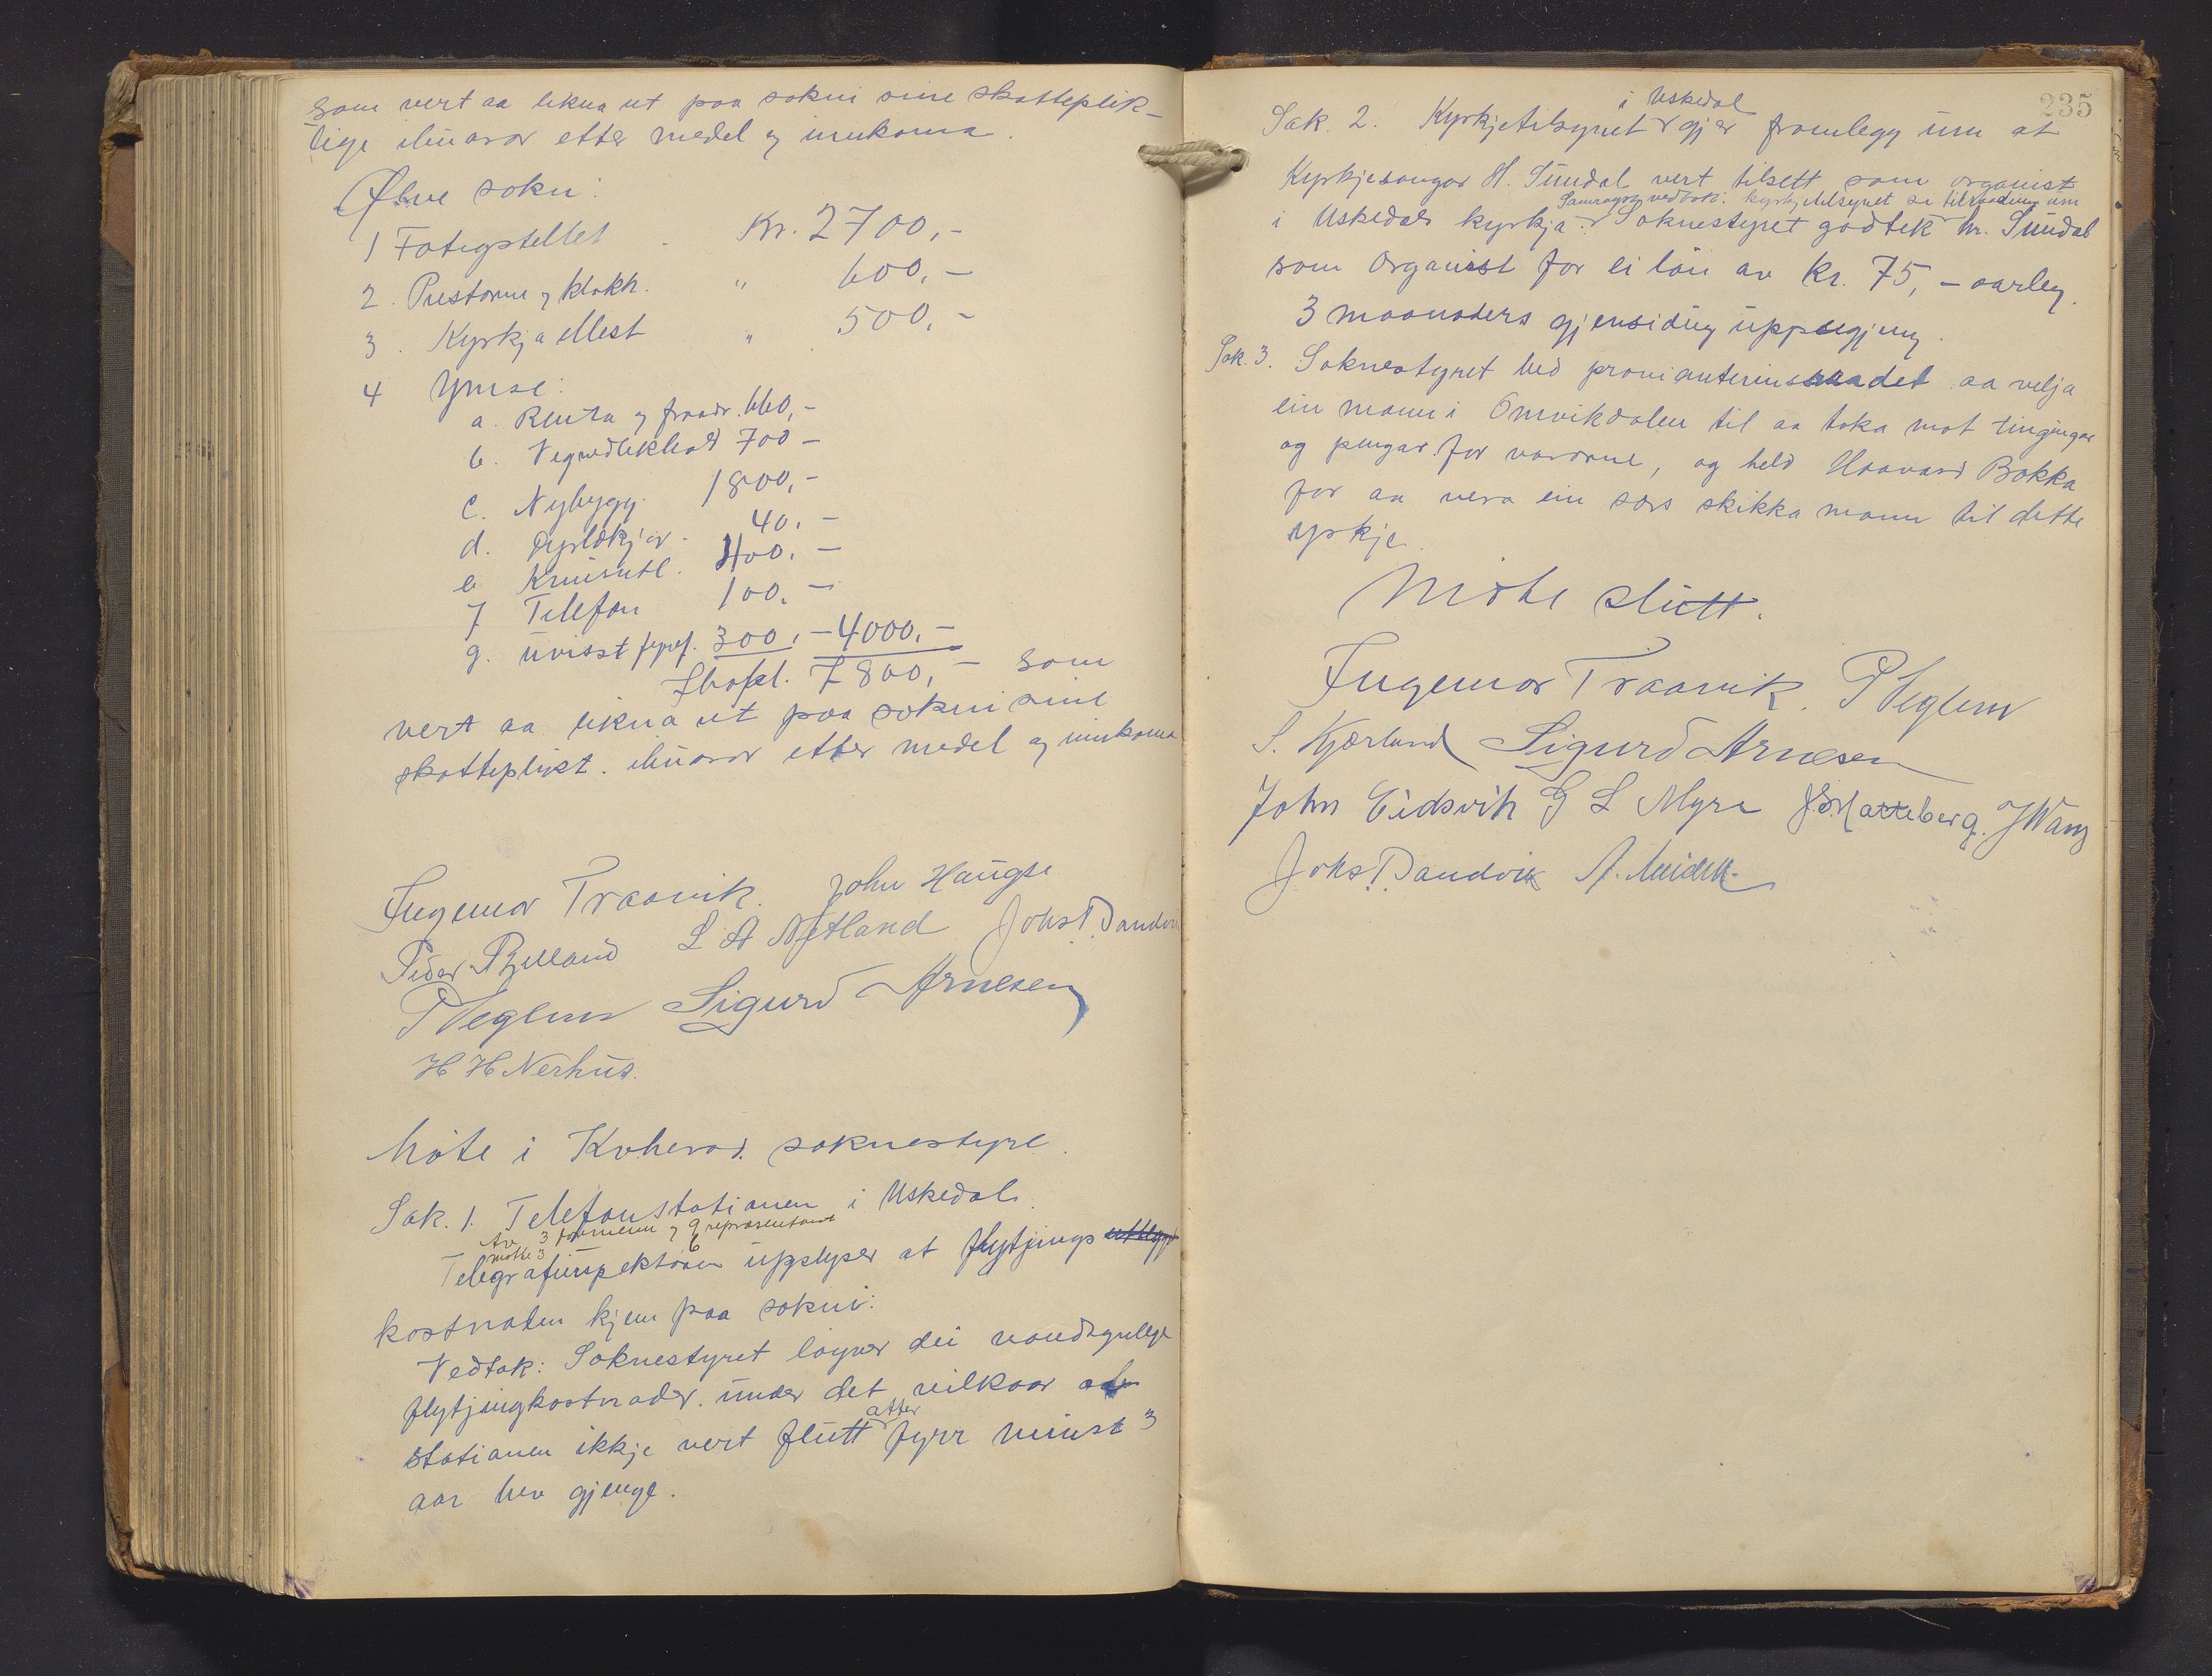 som vert aa likna ut paa sokni sine skatteplik-
tige ibuarar etter medel og innkoma.
Ølve sokn:
1 Fatigstellet Kr. 2700,-
2. Prestorne og klokk. " 600,-
3. Kyrkja Mest " 500,-
4 Ymse:
a. Renta og fraadr. 660,-
b. Vegvedlikhald 700-
c. Nybygg. 1800,-
d. 40,-
e. 400,-
f Telefon 100,-
g. uvisst 300,- 4000,-
7800,- som
vert aa likna ut paa sokni sine
skatteplikt. ibuarar etter medel og innkoma
Ingemar Traavik. John Haugse
Peder L A Netland Johs T. Sandvi
P Veglum Sigurd Arnesen
H H Nerhus.
Møte i Kvherad soknestyre.
Sak. 1. Telefonstationen i Uskedal.
Av 3 formenn og 9 representantar
møtte 3 6
Telegrafinspektøren upplyser at flytjings
kostnaden kjem paa sokni:
Vedtak: Soknestyret løyver dei naudsynlege
flytjingkostnader under det vilkaar at
atter
stationen ikkje vert flutt fyrr minst 3
aar hev gjenge.
235
i Uskedal
Sak. 2. Kyrkjetilsynet gjer framlegg um at
Kyrkjesongar H. Sundal vert tilsett som organist
Samrøystes vedtak: kyrkjetilsynet si tilraading um
i Uskedals kyrkja. Soknestyret godtek hr. Sundal
som Organist for ei løn av kr. 75,- aarleg.
3 maanaders gjensidug uppsegjing.
Sak. 3. Soknestyret bed provianteringsraadet aa velja
ein mann i Omvikdalen til aa taka mot tingingar
og pengar for vararne, og held Haavard Bakka
for aa vera ein sers skikka mann til dette
yrkje.
Møte slutt.
Ingemar Traavik. P Veglum
S. Kjærland Sigurd Arnesen
John Eidsvik G L Myre J S Matteberg. J Wang
Johs T. Sandvik